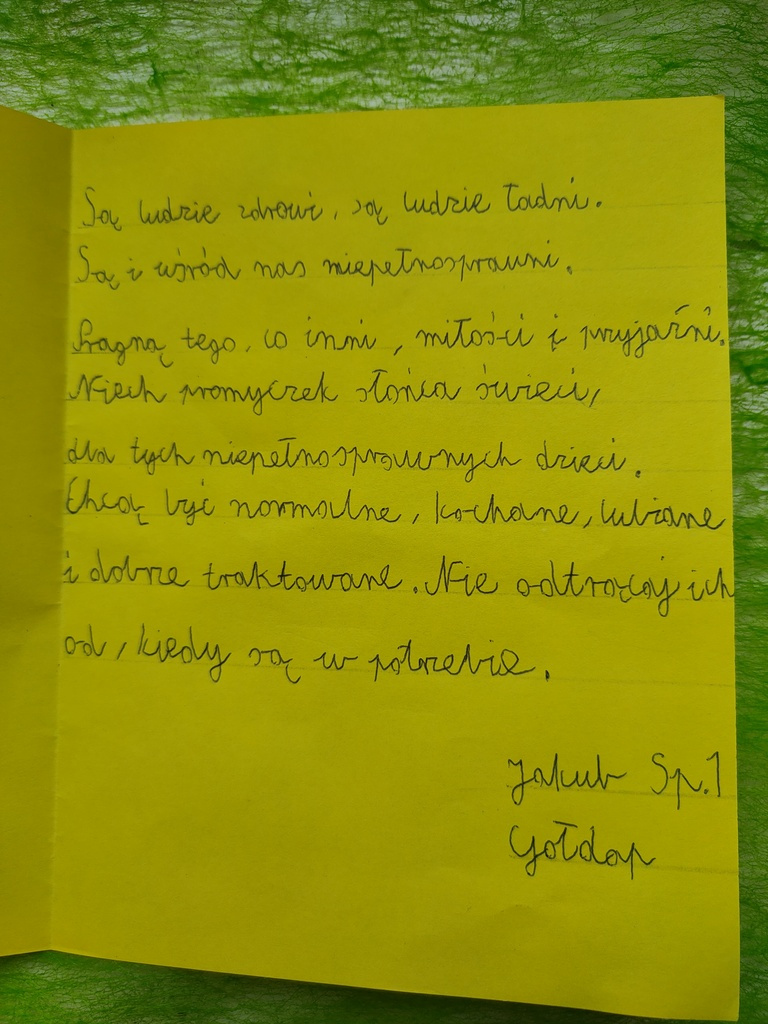 Są ludzie zdrowi, są ludzie ładni.
Są i wśród nas niepełnosprawni.
Pragną tego, co inni, miłości i przyjaźni.
Niech promyczek słońca świeci,
dla tych niepełnosprawnych dzieci.
Chcą być normalne, kochane, lubiane
i dobrze traktowane. Nie odtrącaj ich
od, kiedy są w potrzebie.
Jakub Sp.1
Gołdap